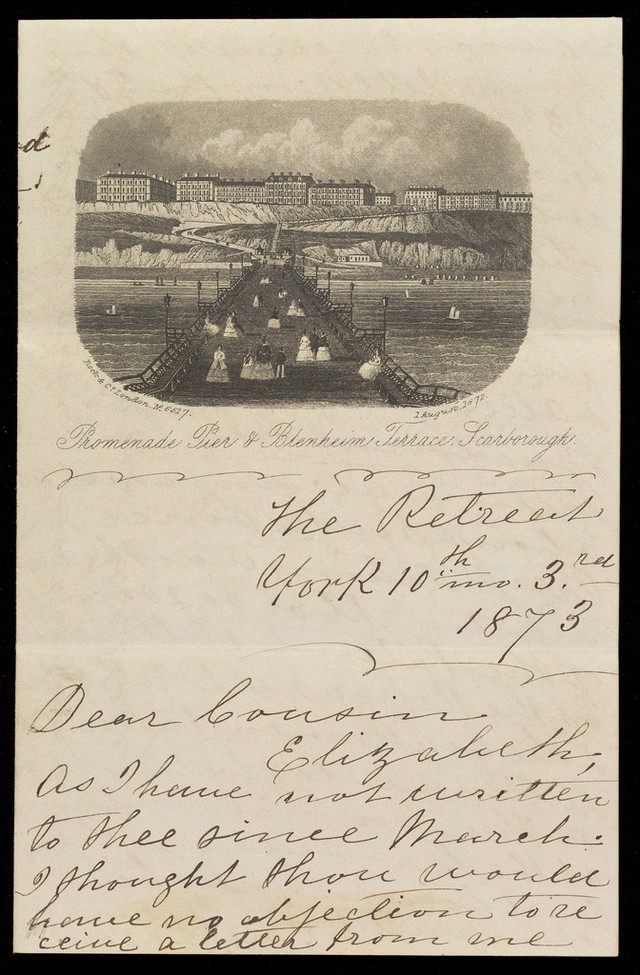 d
Rock & Co. London. No. 6517.
1 August, 1872.
Promenade Pier & Blenheim Terrace, Scarborough.
The Retreat
York 10th mo. 3.rd
1873
Dear Cousin
Elizabeth,
As I have not written
to thee since March.
I thought thou would
have no objection to re
ceive a letter from me